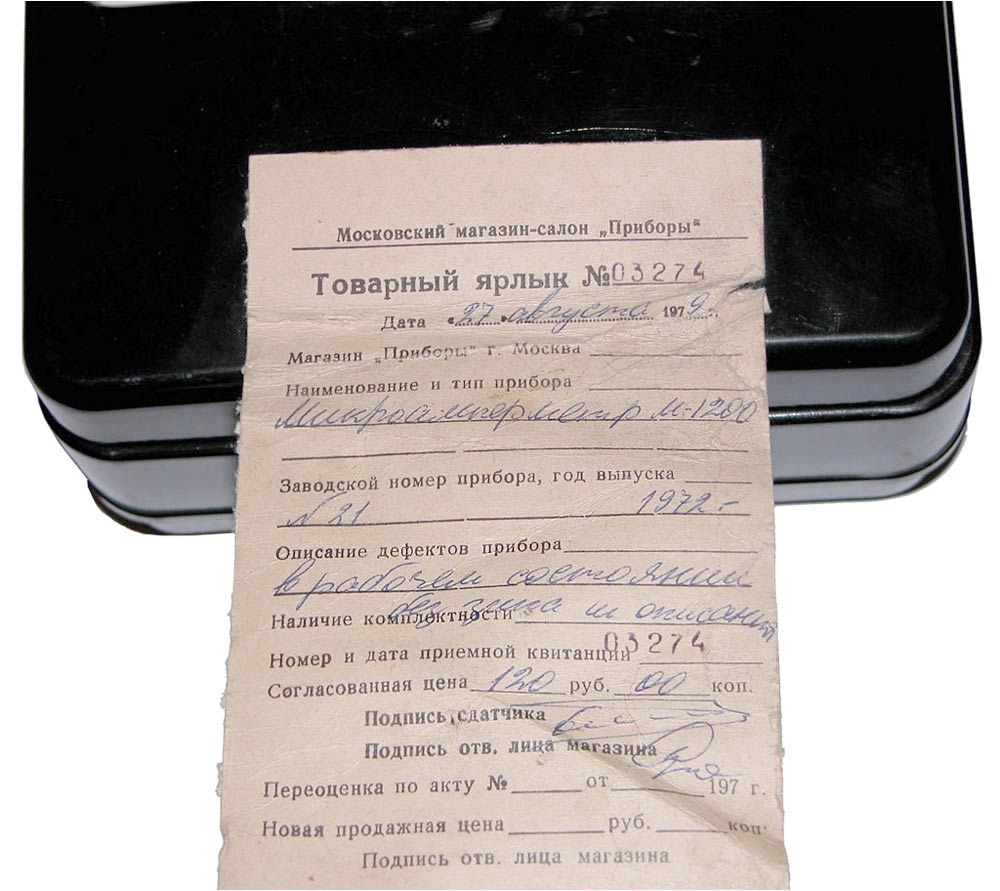 Московский магазин-салон „Приборы“
Товарный ярлык № 03274
Дата «27» августа 1979 г.
Магазин „Приборы“ г. Москва
Наименование и тип прибора
Микроамперметр М-1200
Заводской номер прибора, год выпуска
N 21 1972 г
Описание дефектов прибора
в рабочем состоянии
Наличие комплектности без и описания
Номер и дата приемной квитанции 03274
Согласованная цена 120 руб. 00 коп.
Подпись сдатчика
Подпись отв. лица магазина
Переоценка по акту № от 197 г.
Новая продажная цена руб. коп.
Подпись отв. лица магазина